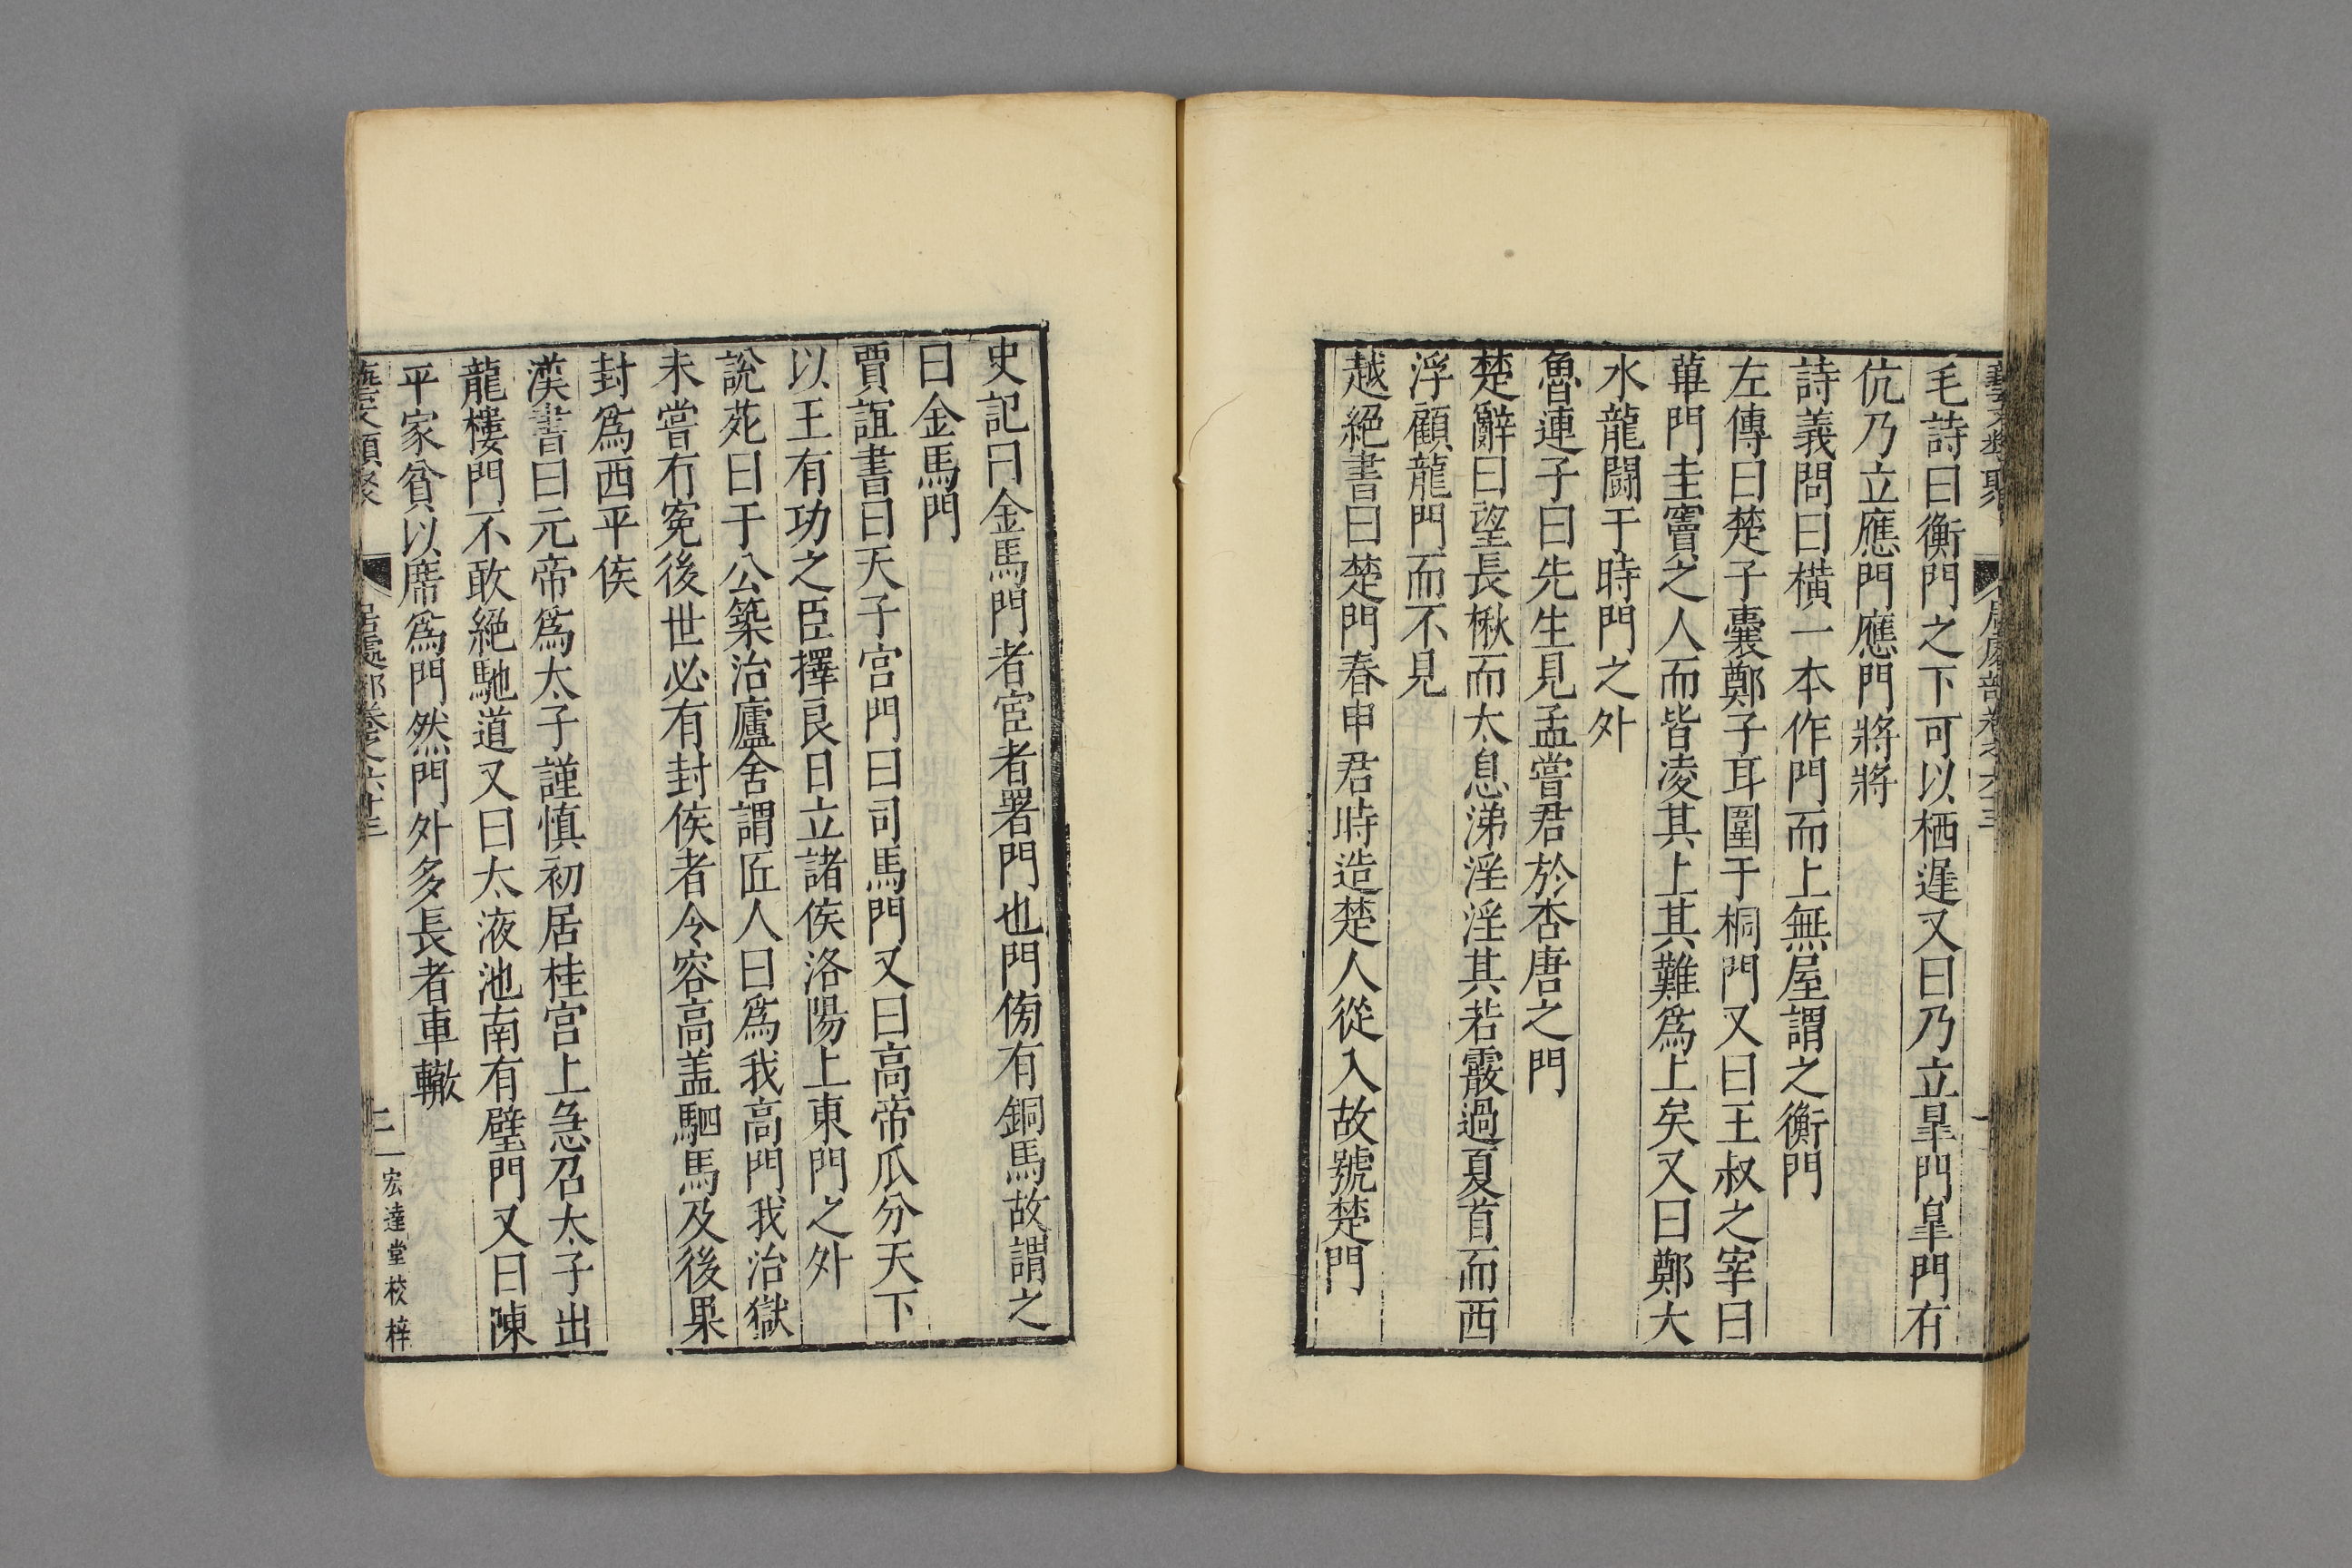 毛詩曰衡門之下可以栖遲又曰乃立皐門皐門有
伉乃立應門應門將將
詩義問曰橫一本作門而上無屋謂之衡門
左傳曰楚子囊鄭子耳圍于桐門又曰王叔之宰曰
蓽門圭竇之人而皆凌其上其難爲上矣又曰鄭大
水龍鬪于時門之外
魯連子曰先生見孟嘗君於杏唐之門
楚辭曰望長楸而太息涕淫淫其若霰過夏首而西
浮顧龍門而不見
越絕書曰楚門春申君時造楚人從入故號楚門
史記曰金馬門者宦者署門也門傍有銅馬故謂之
曰金馬門
賈誼書曰天子宮門曰司馬門又曰高帝瓜分天下
以王有功之臣擇良日立諸侯洛陽上東門之外
說苑曰于公築治廬舍謂匠人曰爲我高門我治獄
未嘗有冤後世必有封侯者令容高盖駟馬及後果
封爲西平侯
漢書曰元帝爲太子謹慎初居桂宮上急召太子出
龍樓門不敢絕馳道又曰太液池南有璧門又曰陳
平家貧以席爲門然門外多長者車轍
藝文類聚 居處部卷之六十三 二 宏達堂校梓